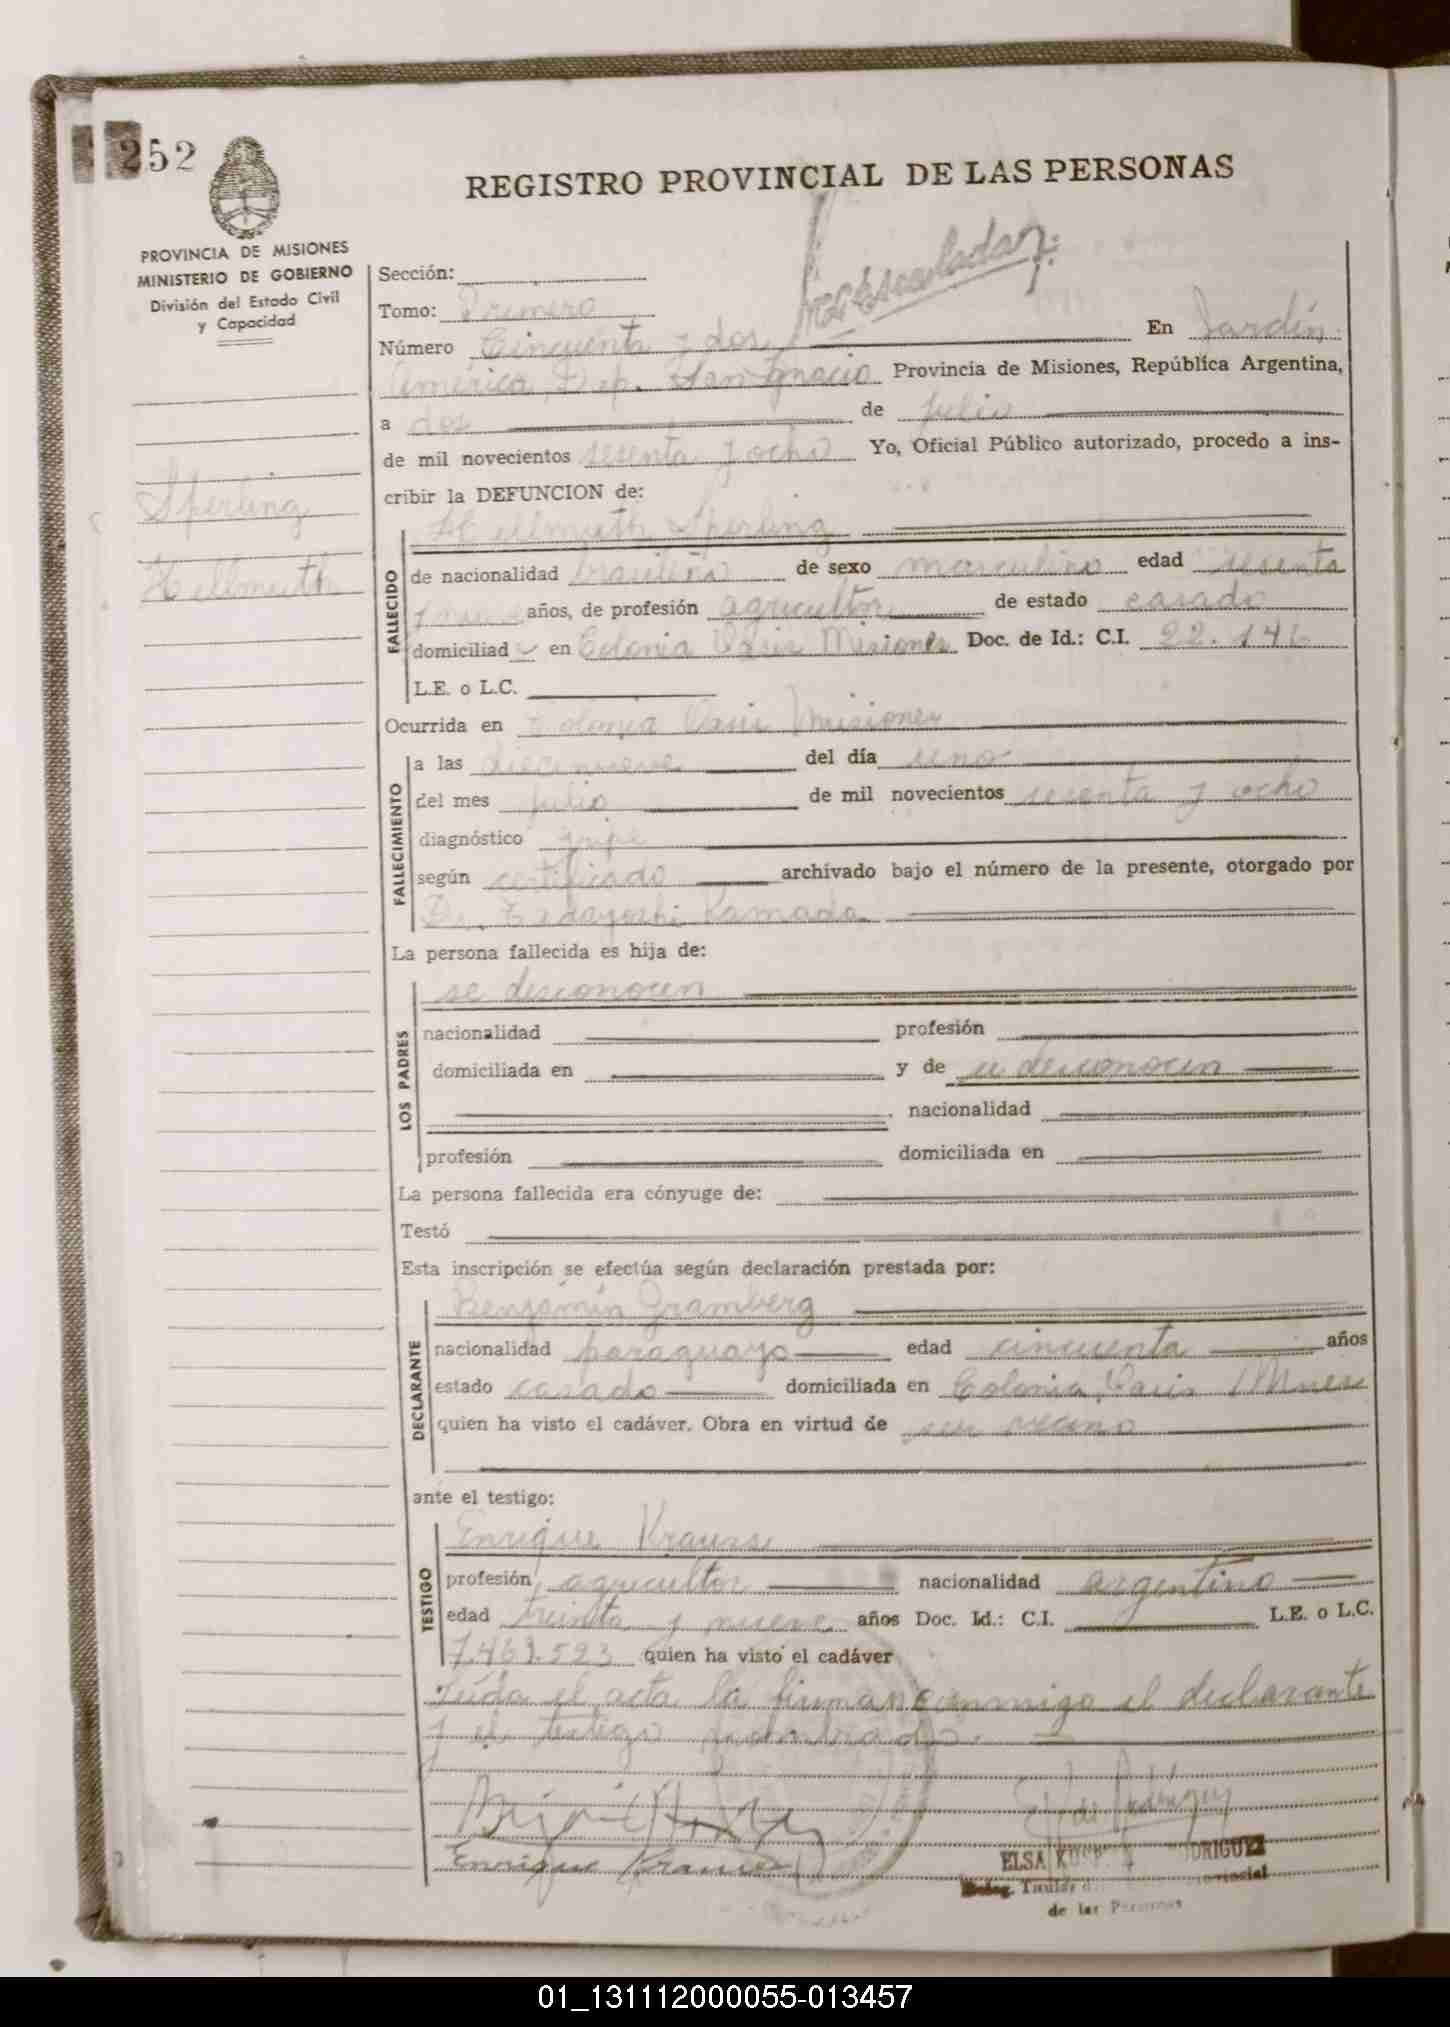 252
REGISTRO PROVINCIAL DE LAS PERSONAS
PROVINCIA DE MISIONES
MINISTERIO DE GOBIERNO
División del Estado Civil
y Capacidad
Sección:
Tomo: Primero
Número Cincuenta y dos En Jardín
América, Dep. San Ignacio Provincia de Misiones, República Argentina,
a dos de julio
de mil novecientos sesenta y ocho Yo, Oficial Público autorizado, procedo a ins-
cribir la DEFUNCION de:
Sperling
Hellmuth
FALLECIDO
Hellmuth Sperling
de nacionalidad brasileña de sexo masculino edad sesenta
y nueve años, de profesión agricultor de estado casado
domiciliad en Colonia Oasis Misiones Doc. de Id.: C.I. 22.146
L.E. o L.C.
Ocurrida en Colonia Oasis Misiones
FALLECIMIENTO
a las diecinueve del día uno
del mes julio de mil novecientos sesenta y ocho
diagnóstico gripe
según certificado archivado bajo el número de la presente, otorgado por
Dr. Tadayoshi Kamada
La persona fallecida es hija de:
LOS PADRES
se desconocen
nacionalidad profesión
domiciliada en y de se desconocen
nacionalidad
profesión domiciliada en
La persona fallecida era cónyuge de:
Testó
Esta inscripción se efectúa según declaración prestada por:
DECLARANTE
Benjamín Gramberg
nacionalidad paraguayo edad cincuenta años
estado casado domiciliada en Colonia Oasis
quien ha visto el cadáver. Obra en virtud de ser vecino
ante el testigo:
TESTIGO
Enrique Krauss
profesión agricultor nacionalidad argentino
edad treinta y nueve años Doc. Id.: C.I. L.E. o L.C.
7.469.593 quien ha visto el cadáver
Leída el acta la firman conmigo el declarante
y el testigo nombrado.
Enrique Krauss
ELSA
de las Personas
01_131112000055-013457